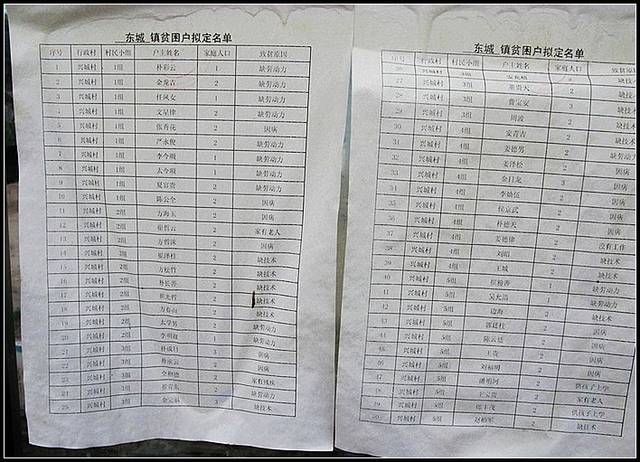 东城 镇贫困户拟定名单
序号 行政村 村民小组 户主姓名 家庭人口 致贫原因
1 兴城村 1组 朴彩云 2 缺劳动力
2 兴城村 1组 金龙吉 2 缺劳动力
3 兴城村 1组 任凤女 1 缺劳动力
4 兴城村 1组 文呈律 2 缺劳动力
5 兴城村 1组 张香花 2 因病
6 兴城村 1组 严永俊 2 缺劳动力
7 兴城村 1组 李今顺 1 缺劳动力
8 兴城村 1组 太今顺 1 缺劳动力
9 兴城村 1组 夏富贵 2 缺劳动力
10 兴城村 1组 陈公全 2 因病
11 兴城村 2组 方海玉 2 因病
12 兴城村 2组 崔哲云 2 家有老人
13 兴城村 2组 方哲洙 2 因病
14 兴城村 2组 崔泽柱 2 缺技术
15 兴城村 2组 方松竹 2 缺技术
16 兴城村 2组 朴长善 2 缺技术
17 兴城村 2组 2 缺技术
18 兴城村 2组 2 缺技术
19 兴城村 2组 太学男 2 缺劳动力
20 兴城村 2组 李明淑 1 缺劳动力
21 兴城村 3组 朴成日 3 因病
22 兴城村 3组 2 因病
23 兴城村 3组 金柳德 2 家有残疾
24 兴城村 3组 2 缺劳动力
25 兴城村 3组 金宝福 3 缺技术
东城 镇贫困户拟定名单
序号 行政村 村民小组 户主姓名 家庭人口 致贫原因
26 兴城村 3组
27 兴城村 3组 董贵大 2 缺技术
28 兴城村 3组 曹宝安 3 缺劳动力
29 兴城村 3组 周波 2 缺技术
30 兴城村 4组 安青吉 2 缺技术
31 兴城村 4组 姜德男 2 缺劳动力
32 兴城村 4组 姜泽松 2 因病
33 兴城村 4组 金日龙 3 因病
34 兴城村 4组 李灿伍 2 因病
35 兴城村 4组 侯京武 2 因病
36 兴城村 4组 朴德天 2 因病
37 兴城村 4组 姜德律 2 没有工作
38 兴城村 4组 刘昭 2 缺技术
39 兴城村 4组 王城 2 缺技术
40 兴城村 5组 1 缺劳动力
41 兴城村 5组 吴允浩 1 缺劳动力
42 兴城村 5组 边海 2 缺技术
43 兴城村 5组 郭廷柱 2 因病
44 兴城村 5组 陈云廷 2 因病
45 兴城村 5组 王贵 2 因病
46 兴城村 5组 刘福明 2 因病
47 兴城村 5组 潘明河 2 供孩子上学
48 兴城村 5组 王宝贵 2 家有老人
49 兴城村 5组 2 供孩子上学
50 兴城村 5组 赵柏军 2 缺技术